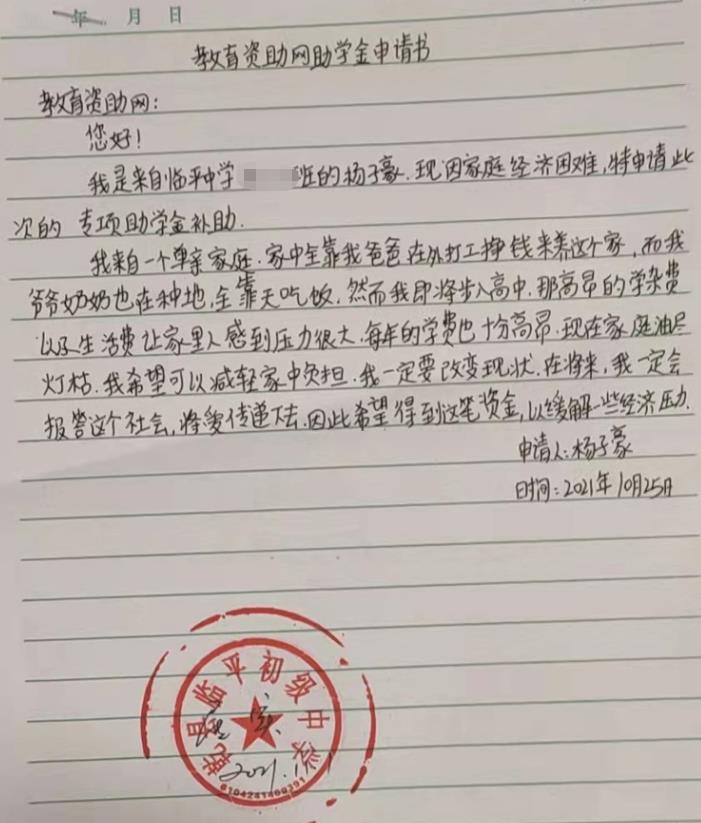 年 月 日
教育资助网助学金申请书
教育资助网:
您好!
我是来自临平中学 班的杨子豪.现因家庭经济困难,特申请此
次的 专项助学金补助.
我来自一个单亲家庭.家中全靠我爸爸在外打工挣钱来养这个家,而我
爷爷奶奶也在种地,全靠天吃饭.然而我即将步入高中.那高昂的学杂费
以及生活费让家里人感到压力很大.每年的学费也十分高昂.现在家庭油尽
灯枯.我希望可以减轻家中负担.我一定要改变现状.在将来,我一定会
报答这个社会,将爱传递下去.因此希望得到这笔资金,以缓解一些经济压力.
申请人:杨子豪
时间:2021年10月25日
乾县临平初级中学
实
2021.11.1
6104241400391